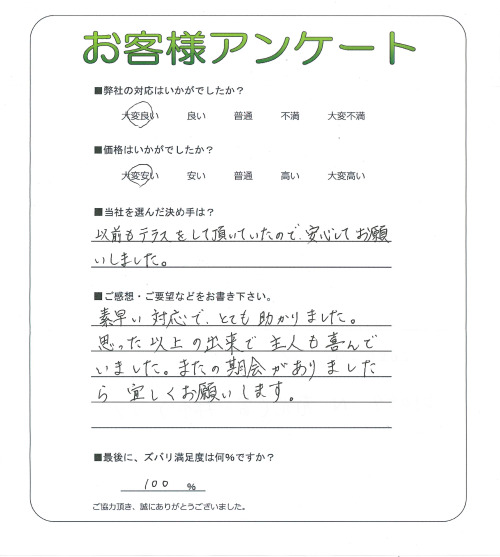 お客様アンケート
■弊社の対応はいかがでしたか？
大変良い 良い 普通 不満 大変不満
■価格はいかがでしたか？
大変安い 安い 普通 高い 大変高い
■当社を選んだ決め手は？
以前もテラスをして頂いていたので、安心してお願
いしました。
■ご感想・ご要望などをお書き下さい。
素早い対応で、とても助かりました。
思った以上の出来で主人も喜んで
いました。またの期会がありました
ら宜しくお願いします。
■最後に、ズバリ満足度は何%ですか？
100 %
ご協力頂き、誠にありがとうございました。